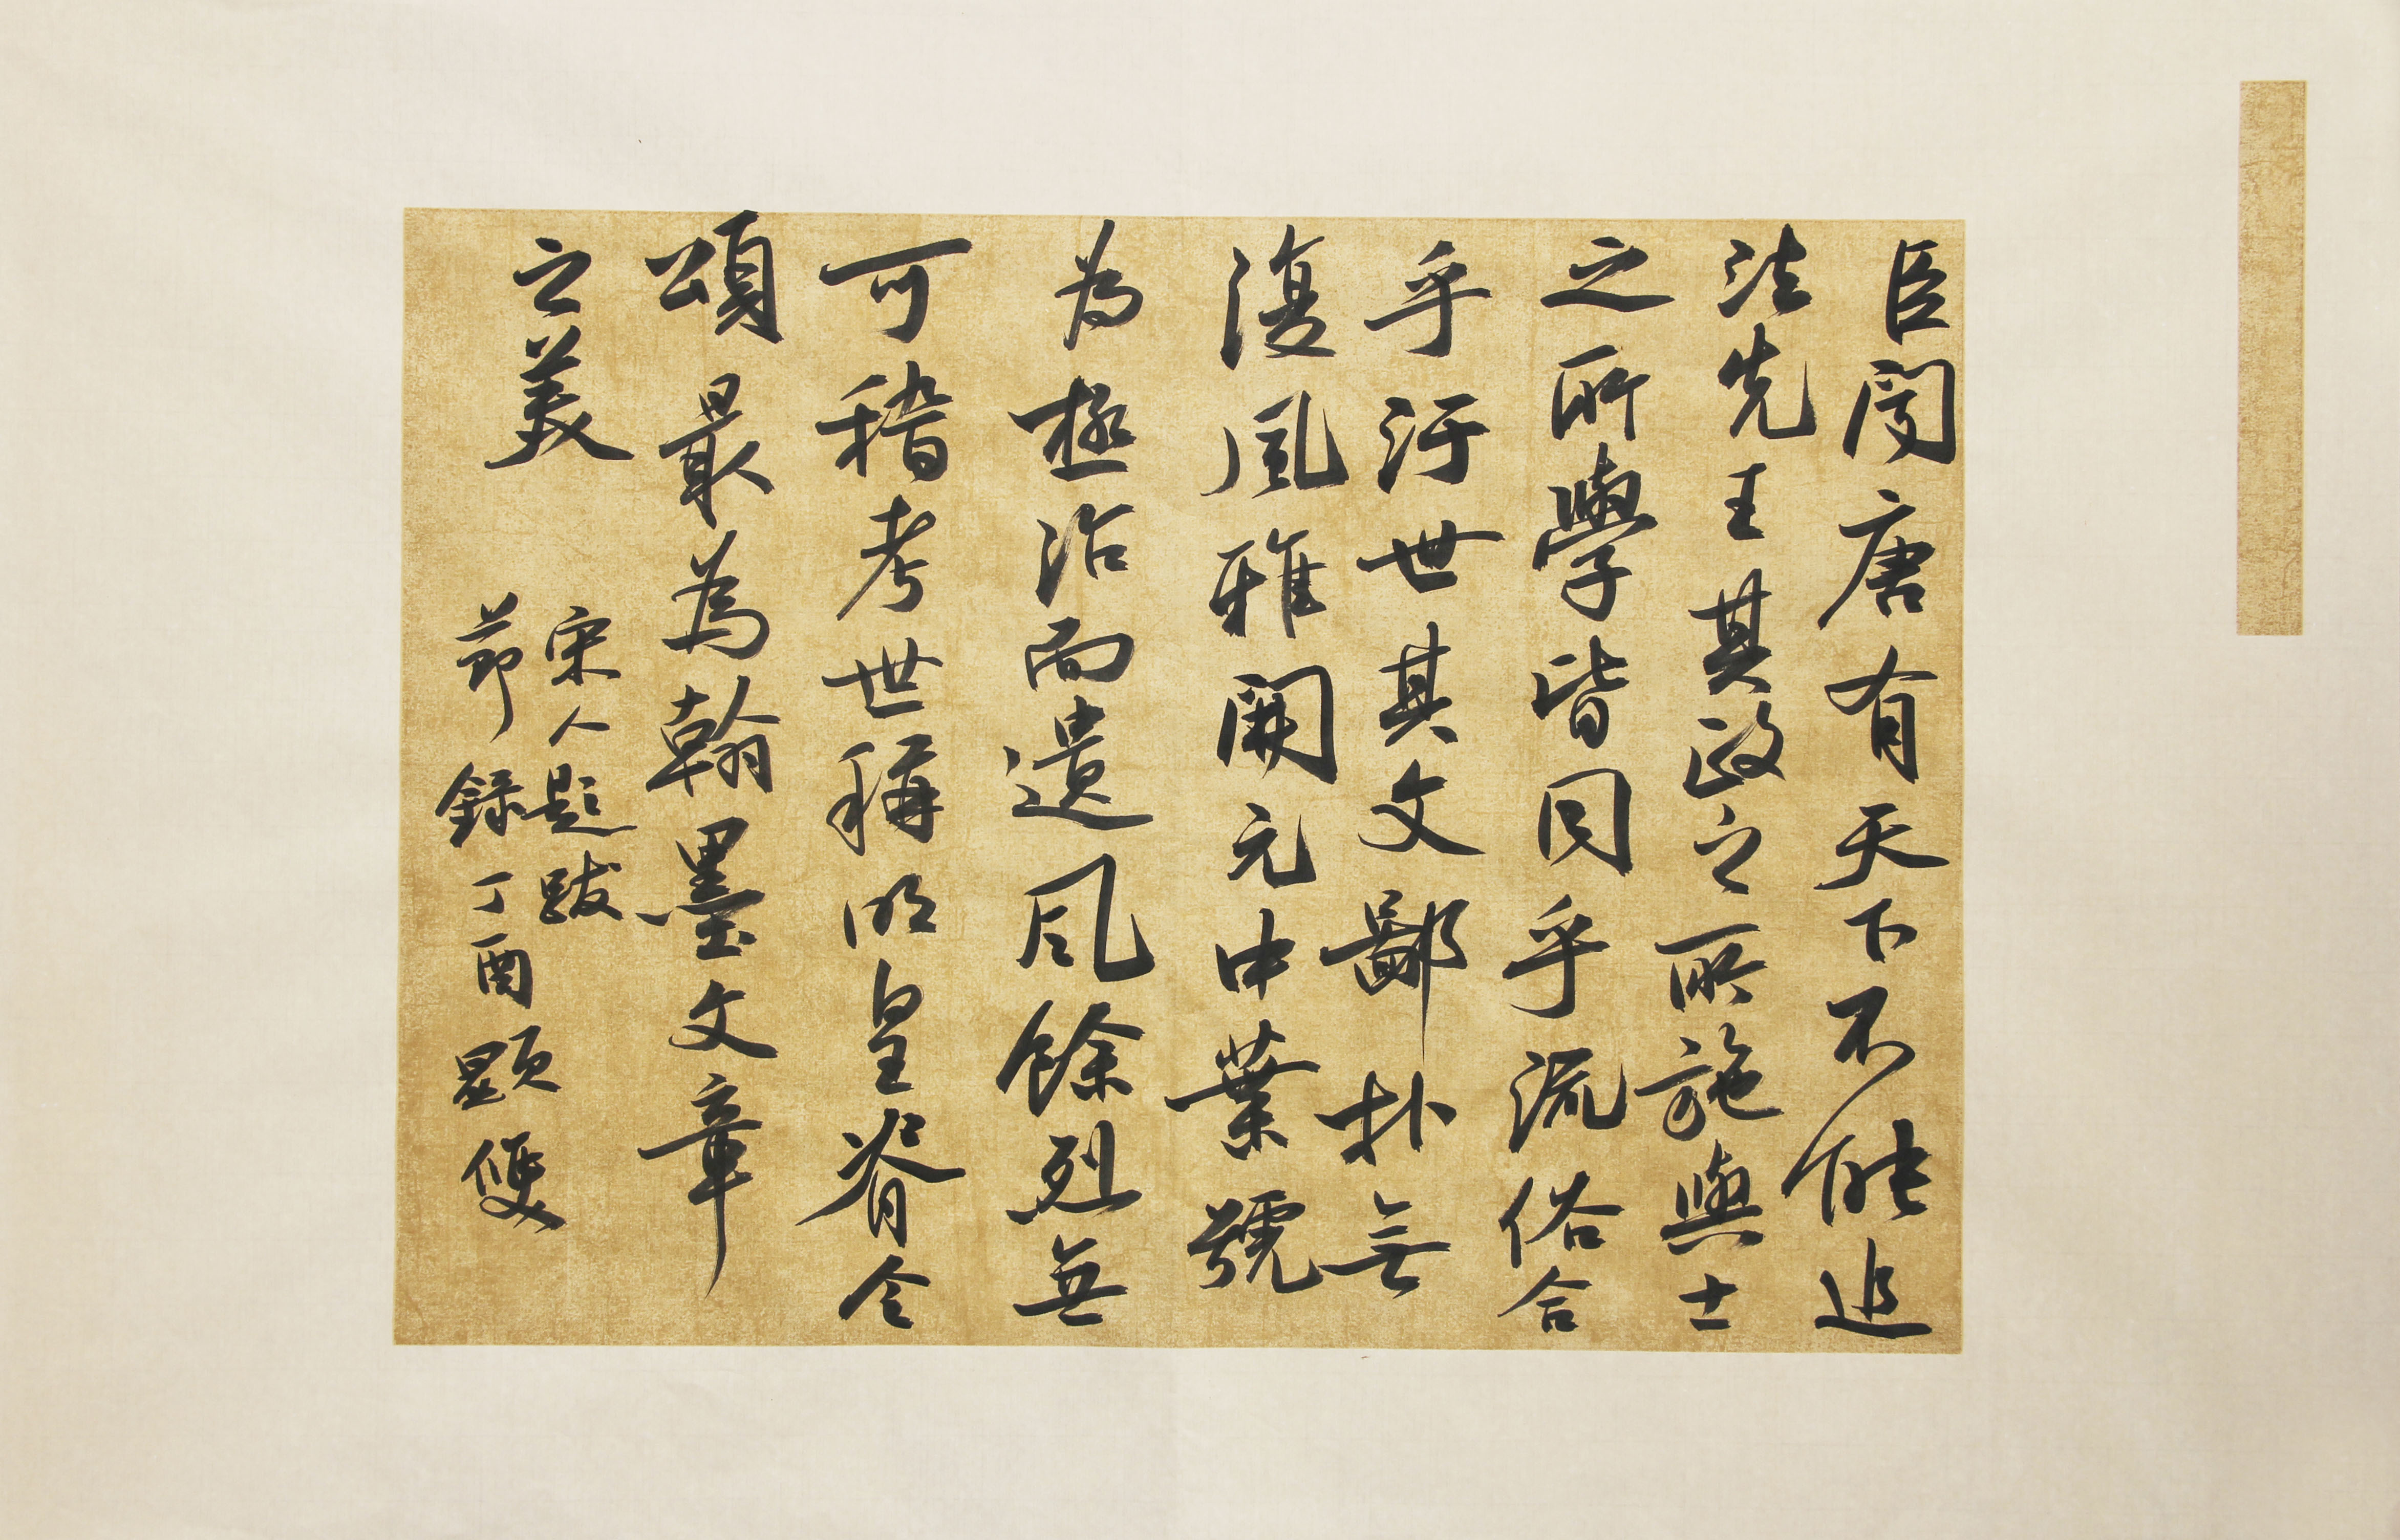 臣聞唐有天下不能追
法先王其政之所施與士
之所學皆同乎流俗合
乎汙世其文鄙朴無
復風雅開元中業號
為極治而遺風餘烈無
可稽考世稱明皇脊令
頌最為翰墨文章
之美
宋人題跋
節錄丁酉顯雙